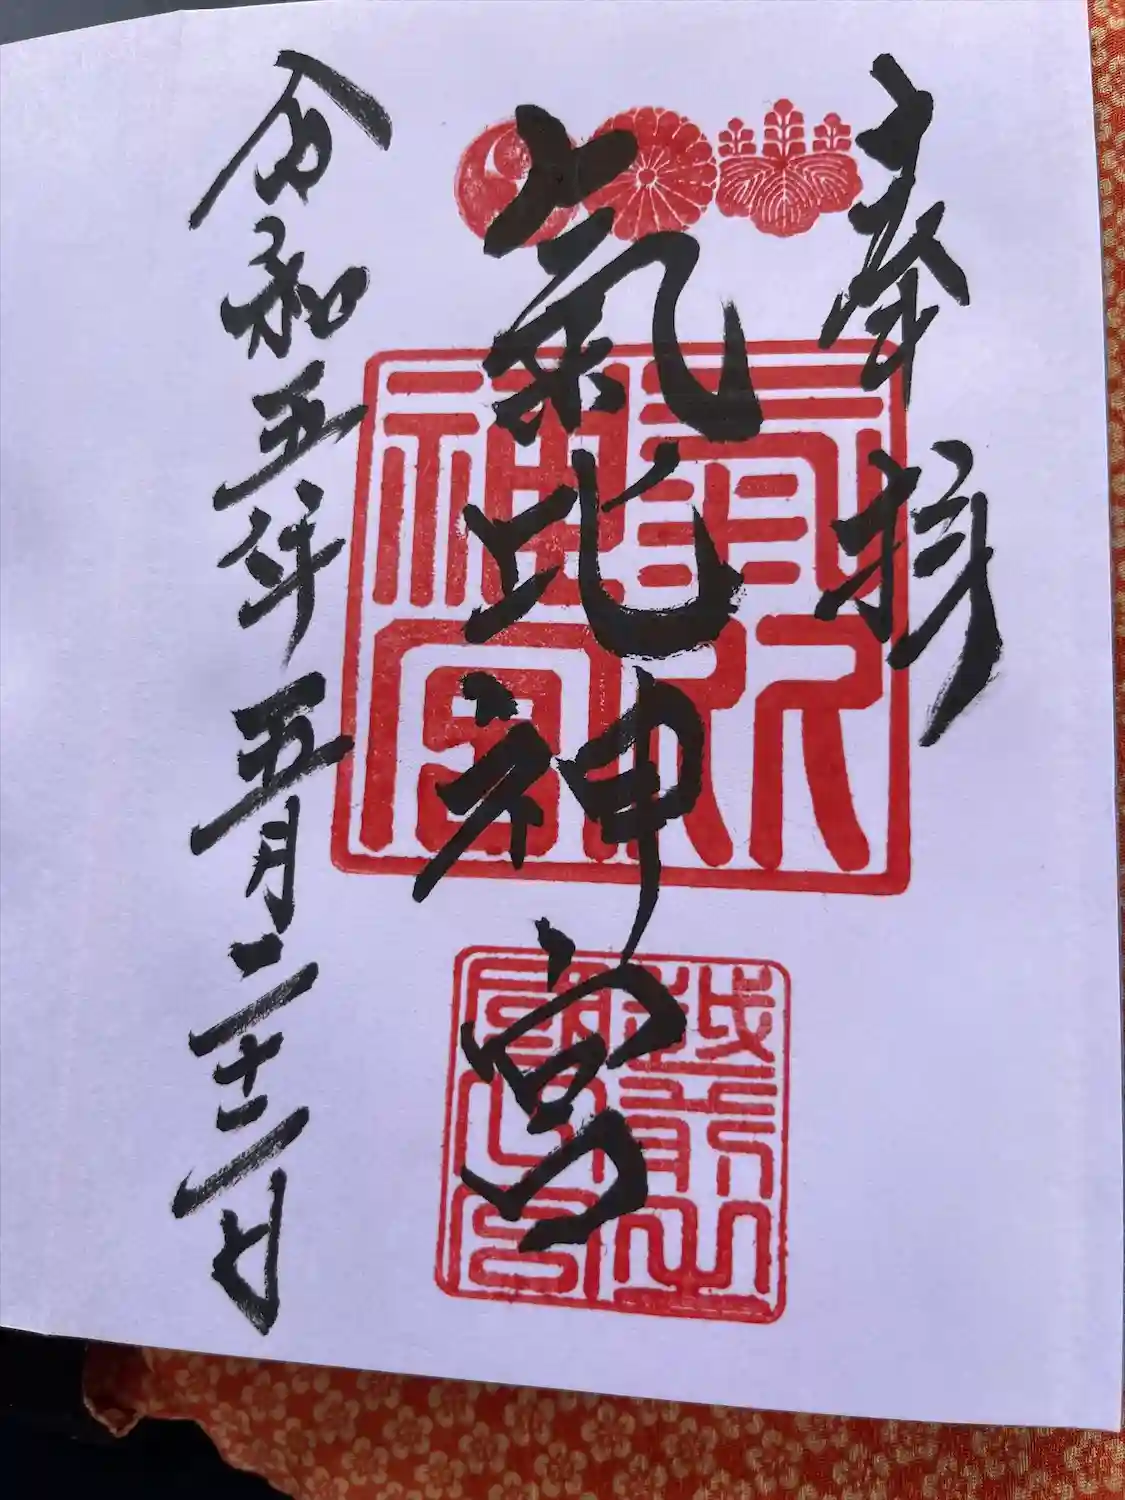 奉拝
氣比神宮
氣比神宮
令和五年五月二十二日